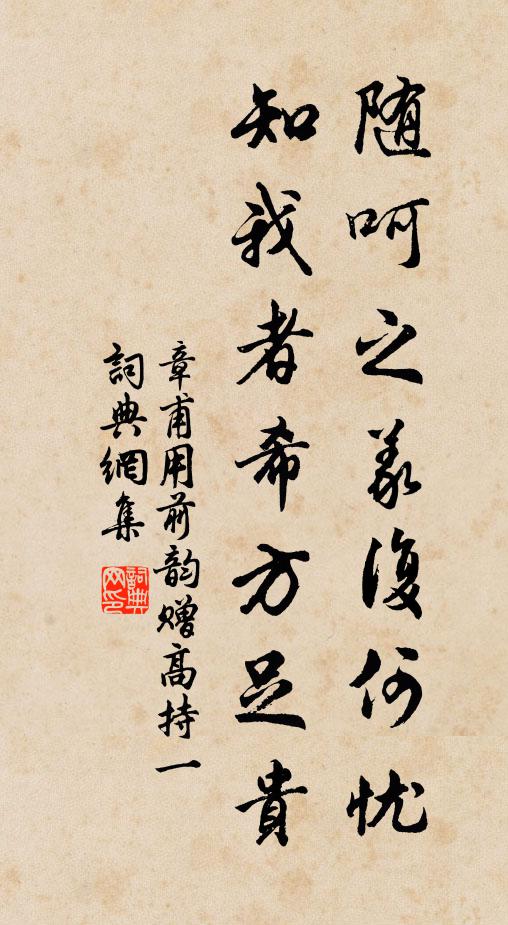 随呵之義復何忧
知我者希方足貴
章甫用前韵赠高持一
詞典網集
詞典网印